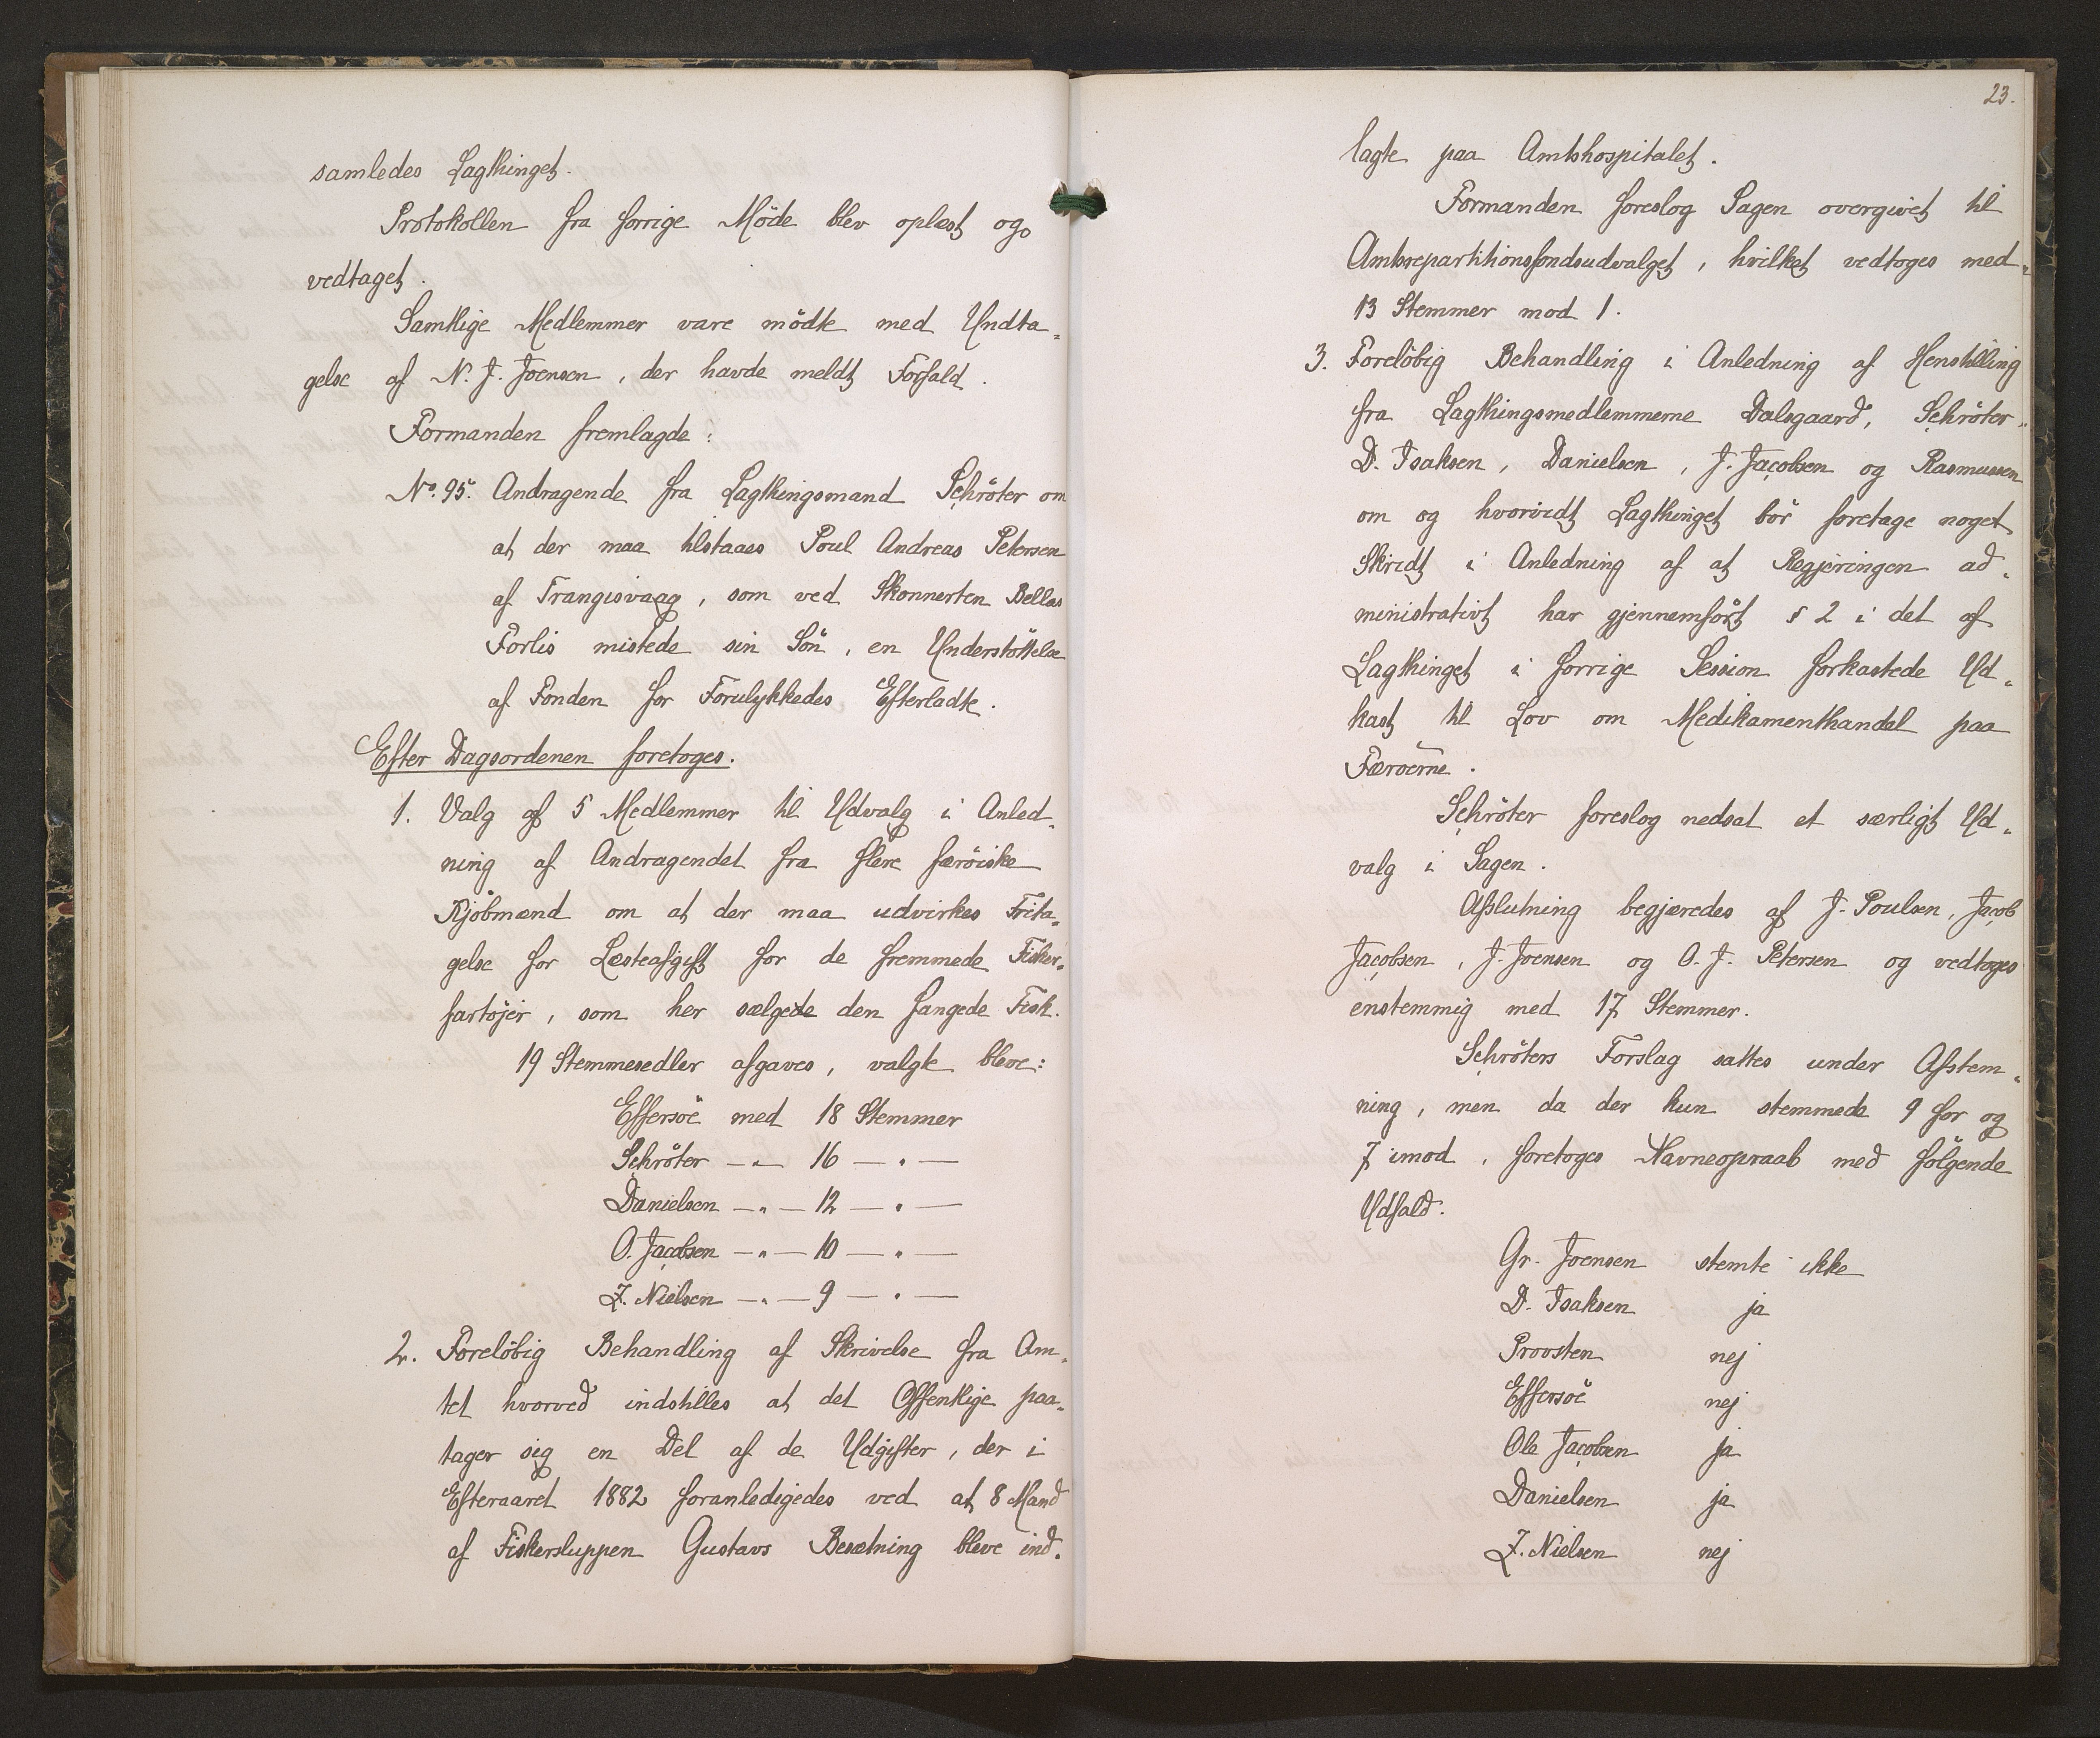 samledes Lagthinget.
Protokollen fra forrige Möde blev oplæst og
vedtaget.
Samtlige Medlemmer vare mödte med Undta„
gelse af N. J. Joensen, der havde meldt Forfald.
Formanden fremlagde:
No. 95. Andragende fra Lagthingsmand Schröter om
at der maa tilstaaes Poul Andreas Petersen
af Trangisvaag, som ved Skonnerten Bellas
Forlis mistede sin Sön, en Understöttelse
af Fonden for Forulykkedes Efterladte.
Efter Dagsordenen foretoges.
1. Valg af 5 Medlemmer til Udvalg i Anled„
ning af Andragendet fra flere færöiske
Kjöbmænd om at der maa udvirkes Frita„
gelse for Læsteafgift for de fremmede Fisker„
fartöjer, som her sælgede den fangede Fisk.
19 Stemmesedler afgaves, valgte bleve:
Effersöe med 18 Stemmer
Schröter —„— 16 —„—
Danielsen —„— 12 —„—
O. Jacobsen —„— 10 —„—
Z. Nielsen —„— 9 —„—
2. Forelöbig Behandling af Skrivelse fra Am„
tet hvorved indstilles at det Offentlige paa„
tager sig en Del af de Udgifter, der i
Efteraaret 1882 foranledigedes ved at 8 Mand
af Fiskersluppen Gustavs Besætning bleve ind„
23.
lagte paa Amtshospitalet.
Formanden foreslog Sagen overgivet til
Amtsrepartitionsfondsudvalget, hvilket vedtoges med„
13 Stemmer mod 1.
3. Forelöbig Behandling i Anledning af Henstilling
fra Lagthingsmedlemmerne Dalsgaard, Schröter„
D. Isaksen, Danielsen, J. Jacobsen og Rasmussen
om og hvorvidt Lagthinget bör foretage noget
Skridt i Anledning af at Regjeringen ad„
ministrativt har gjennemfört § 2 i det af
Lagthinget i forrige Session forkastede Ud„
kast til Lov om Medikamenthandel paa
Færoerne.
Schröter foreslog nedsat et særligt Ud„
valg i Sagen.
Afslutning begjæredes af J. Poulsen, Jacob
Jacobsen, J. Joensen og O. J. Petersen og vedtoges
enstemmig med 17 Stemmer.
Schröters Forslag sattes under Afstem„
ning, men da der kun stemmede 9 for og
7 imod, foretoges Navneopraab med fölgende
Udfald.
Gr. Joensen stemte ikke
D. Isaksen ja
Provsten nej
Effersöe nej
Ole Jacobsen ja
Danielsen ja
Z. Nielsen nej